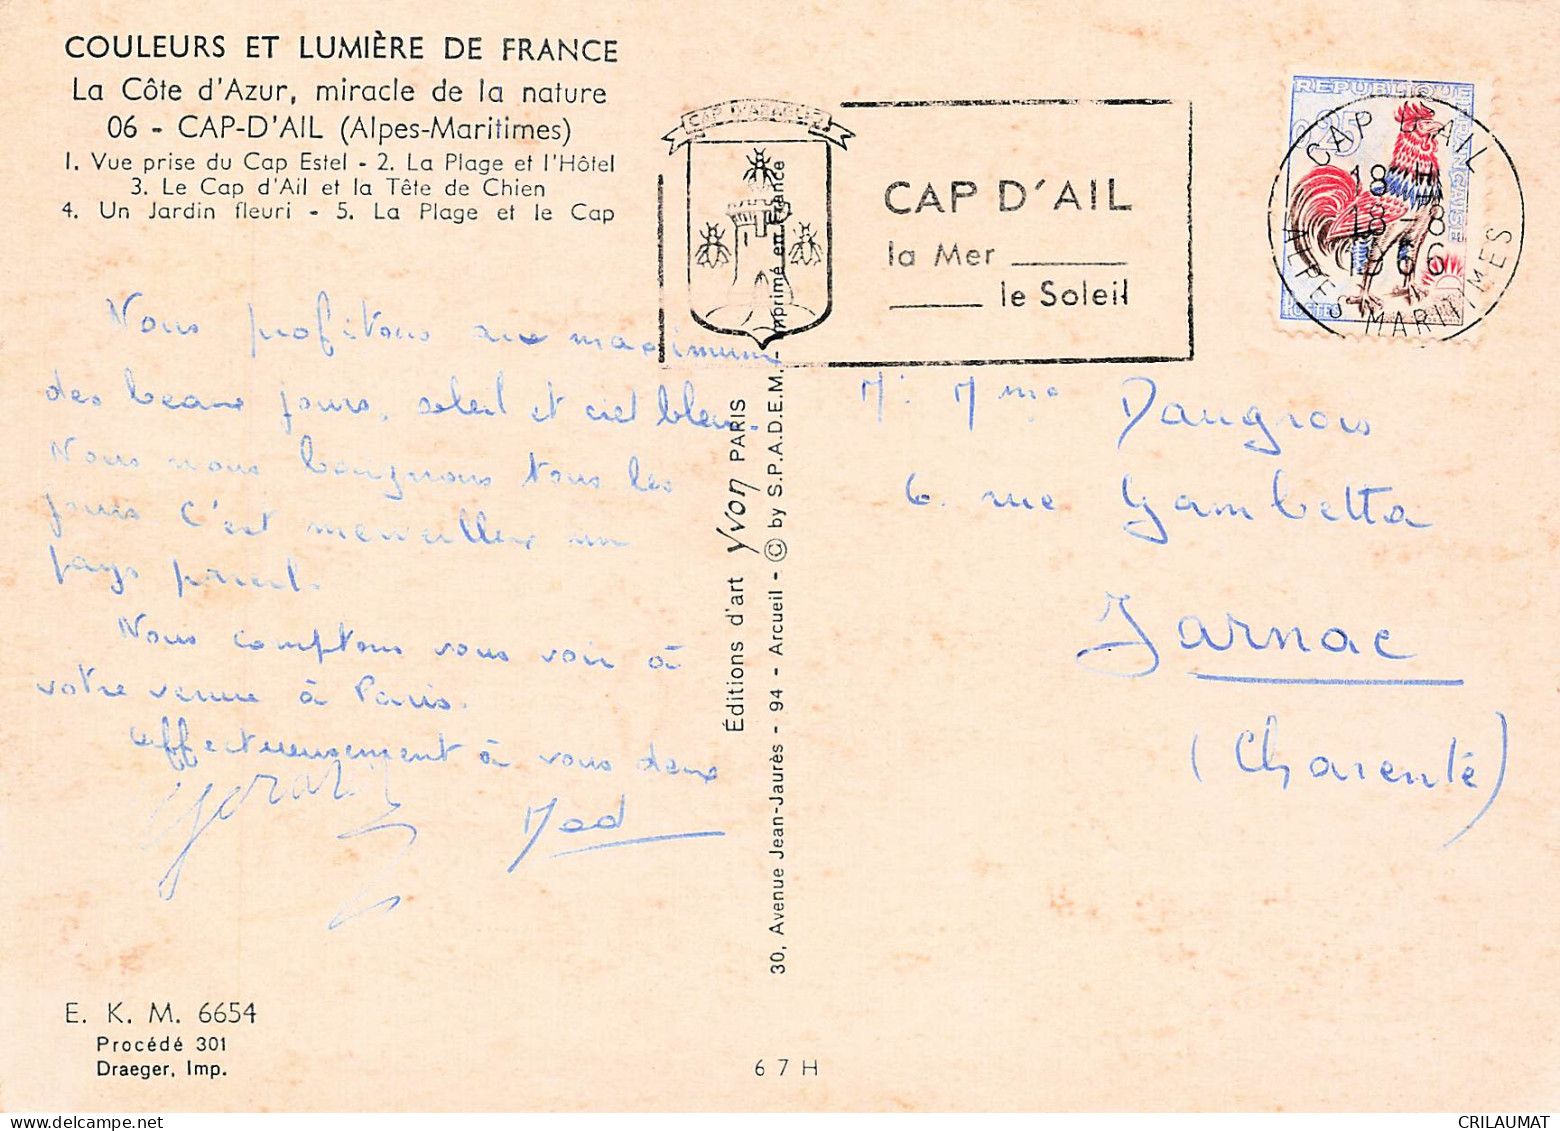 COULEURS ET LUMIÈRE DE FRANCE
La Côte d'Azur, miracle de la nature
06 - CAP-D'AIL (Alpes-Maritimes)
1. Vue prise du Cap Estel - 2. La Plage et l'Hôtel
3. Le Cap d'Ail et la Tête de Chien
4. Un Jardin fleuri - 5. La Plage et le Cap
Nous profitons au maximum
des beaux jours, soleil et ciel bleu.
Nous nous baignons tous les
jours. C'est merveilleux un
pays pareil.
Nous comptons vous voir à
votre venue à Paris.
Affectueusement à vous deux
Gérard
Mad
E. K. M. 6654
Procédé 301
Draeger, Imp.
Éditions d'art Yvon PARIS
30, Avenue Jean-Jaurès - 94 - Arcueil - © by S.P.A.D.E.M. - Imprimé en France
67H
CAP D'AIL
la Mer
le Soleil
REPUBLIQUE FRANÇAISE
0,25
POSTES
CAP D'AIL
18 H
18-8
1966
ALPES MARITIMES
M. Mme Daugrois
6. rue Gambetta
Jarnac
(Charente)
CRILAUMAT